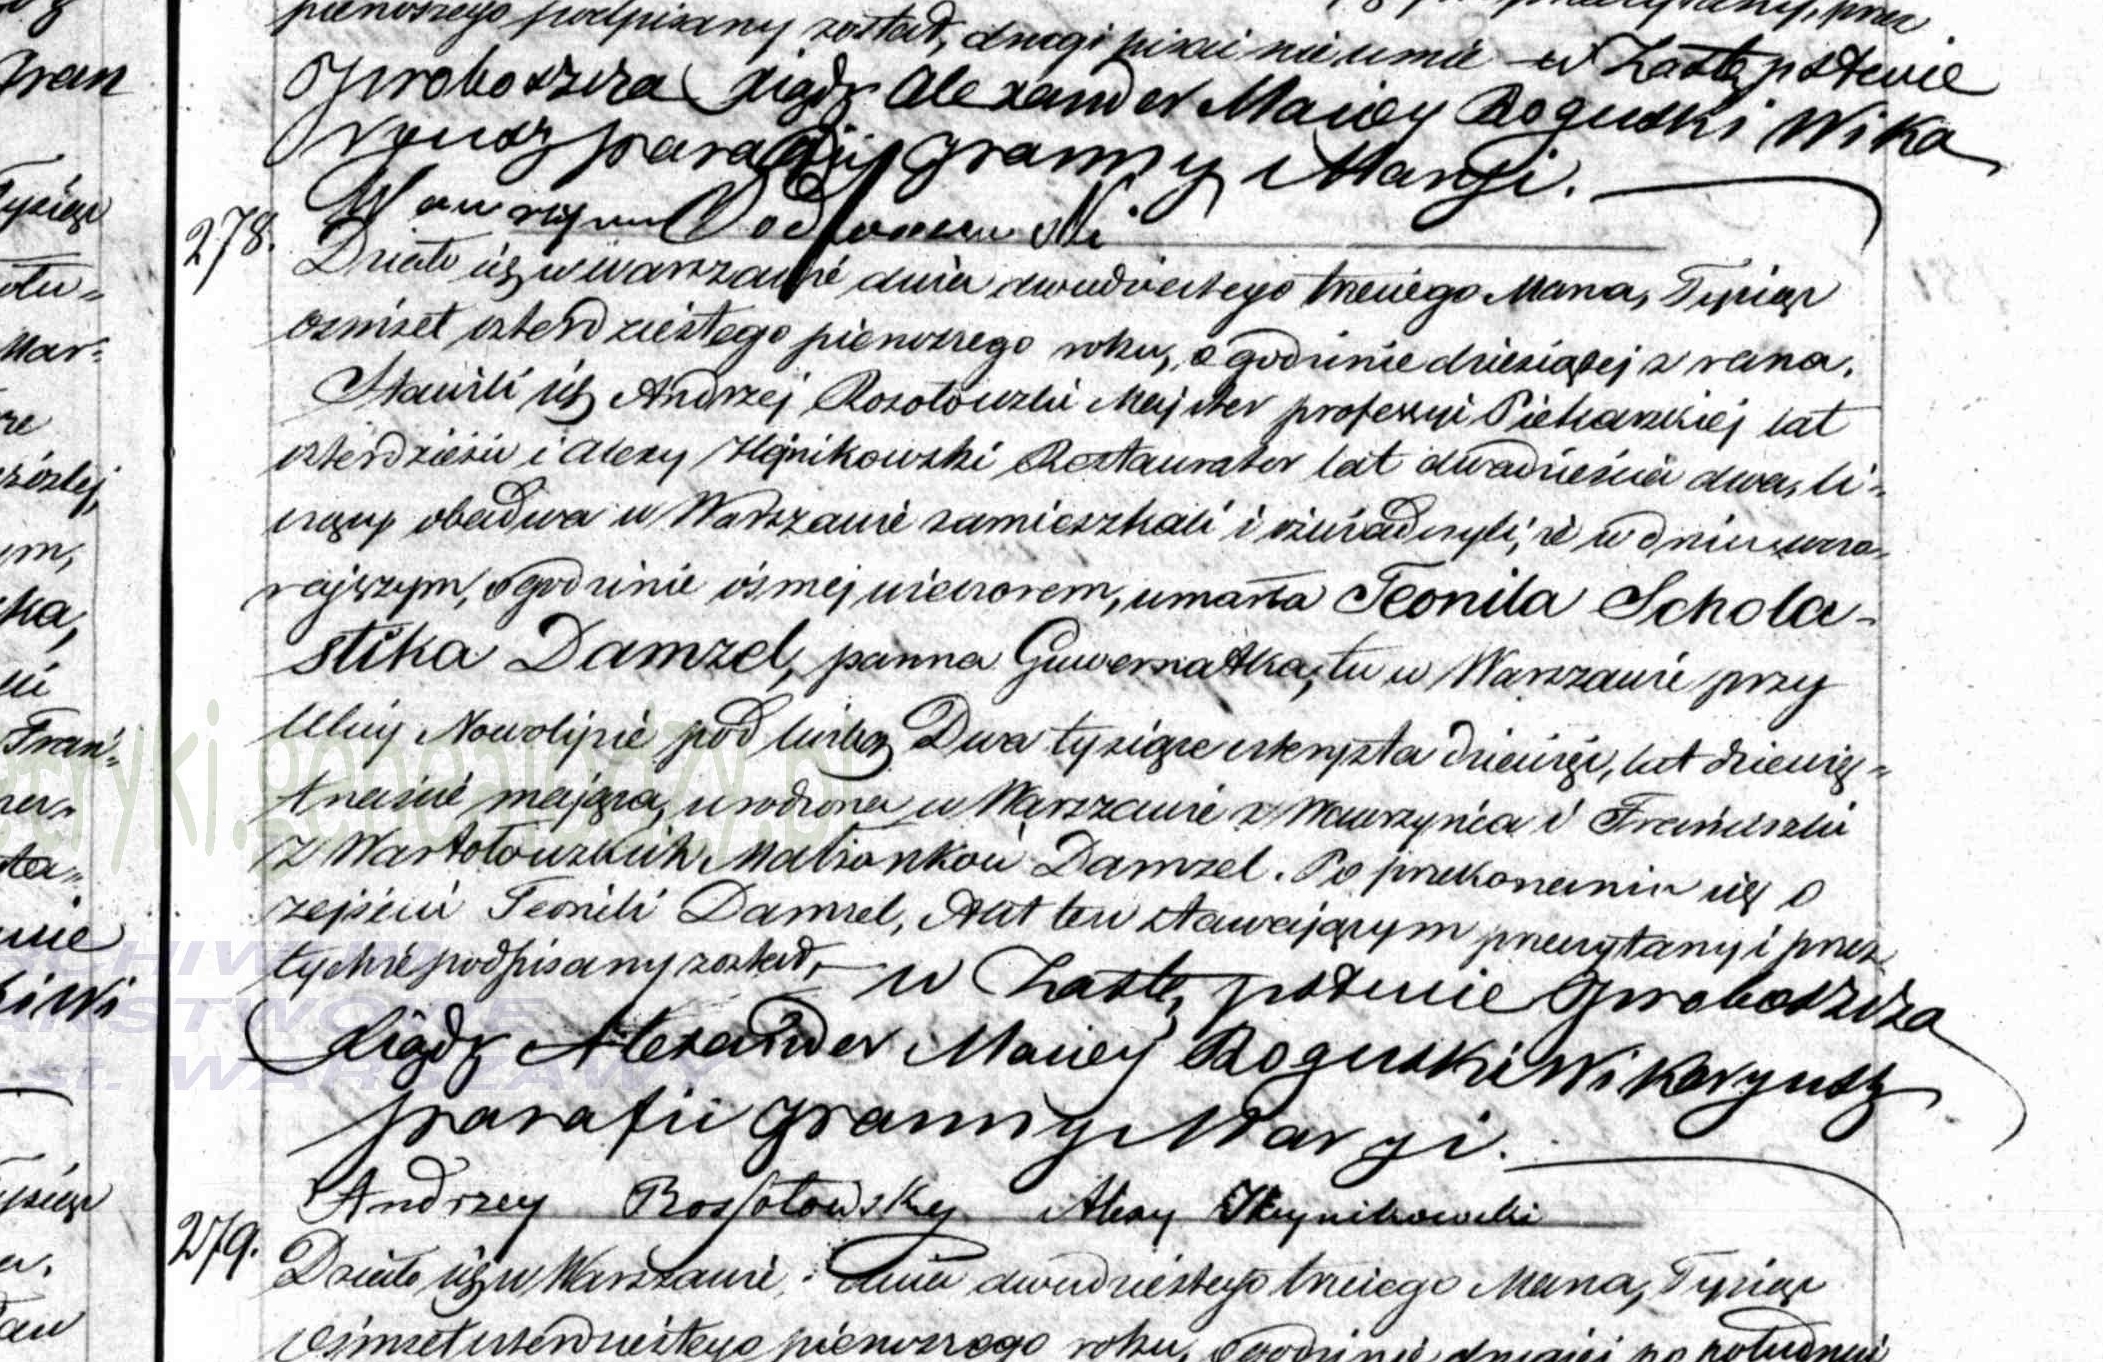 pierwszego podpisany został, drugi pisać nie umie – w Zastępstwie
Proboszcza Xiądz Alexander Maciey Rogulski Wika
ryusz parafii Panny Maryi.
278.
Działo się w Warszawie dnia dwudziestego trzeciego Marca, Tysiąc
osmset czterdziestego pierwszego roku, o godzinie dziesiątej z rana.
Stawili się Andrzej Rosołowski Majster professyi Piekarskiej lat
czterdzieści i Alexy Restaurator lat dwadzieścia dwa, li-
czący obadwa w Warszawie zamieszkali i oświadczyli, że w dniu wczo-
rajszym, o godzinie ósmej wieczorem, umarła Teonila Schola-
stika Damzel, panna Guwernatka, tu w Warszawie przy
Ulicy Nowolipie pod liczbą Dwa tysiące czterysta dziewięć, lat dziewię-
tnaście mająca, urodzona w Warszawie z Wawrzyńca i Franciszki
z Wartołowskich Małżonków Damzel. Po przekonaniu się o
zejściu Teonili Damzel, Akt ten stawającym przeczytany i przez
tychże podpisany został, – w Zastępstwie Proboszcza
Xiądz Alexander Maciey Rogulski Wikaryusz
parafii Panny Maryi.
Andrzey Rossołowsky Alexy
279.
Działo się w Warszawie, dnia dwudziestego trzeciego Marca, Tysiąc
ośmset czterdziestego pierwszego roku, o godzinie drugiej po południu
Fran
Tysiąc
Mar-
Fran-
metryki.genealodzy.pl
ARCHIWUM
PAŃSTWOWE
st. WARSZAWY